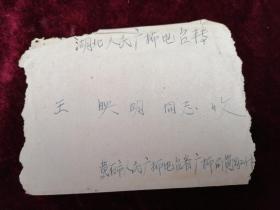 湖北人民广播电台转
王映明同志收
黄石市人民广播电台